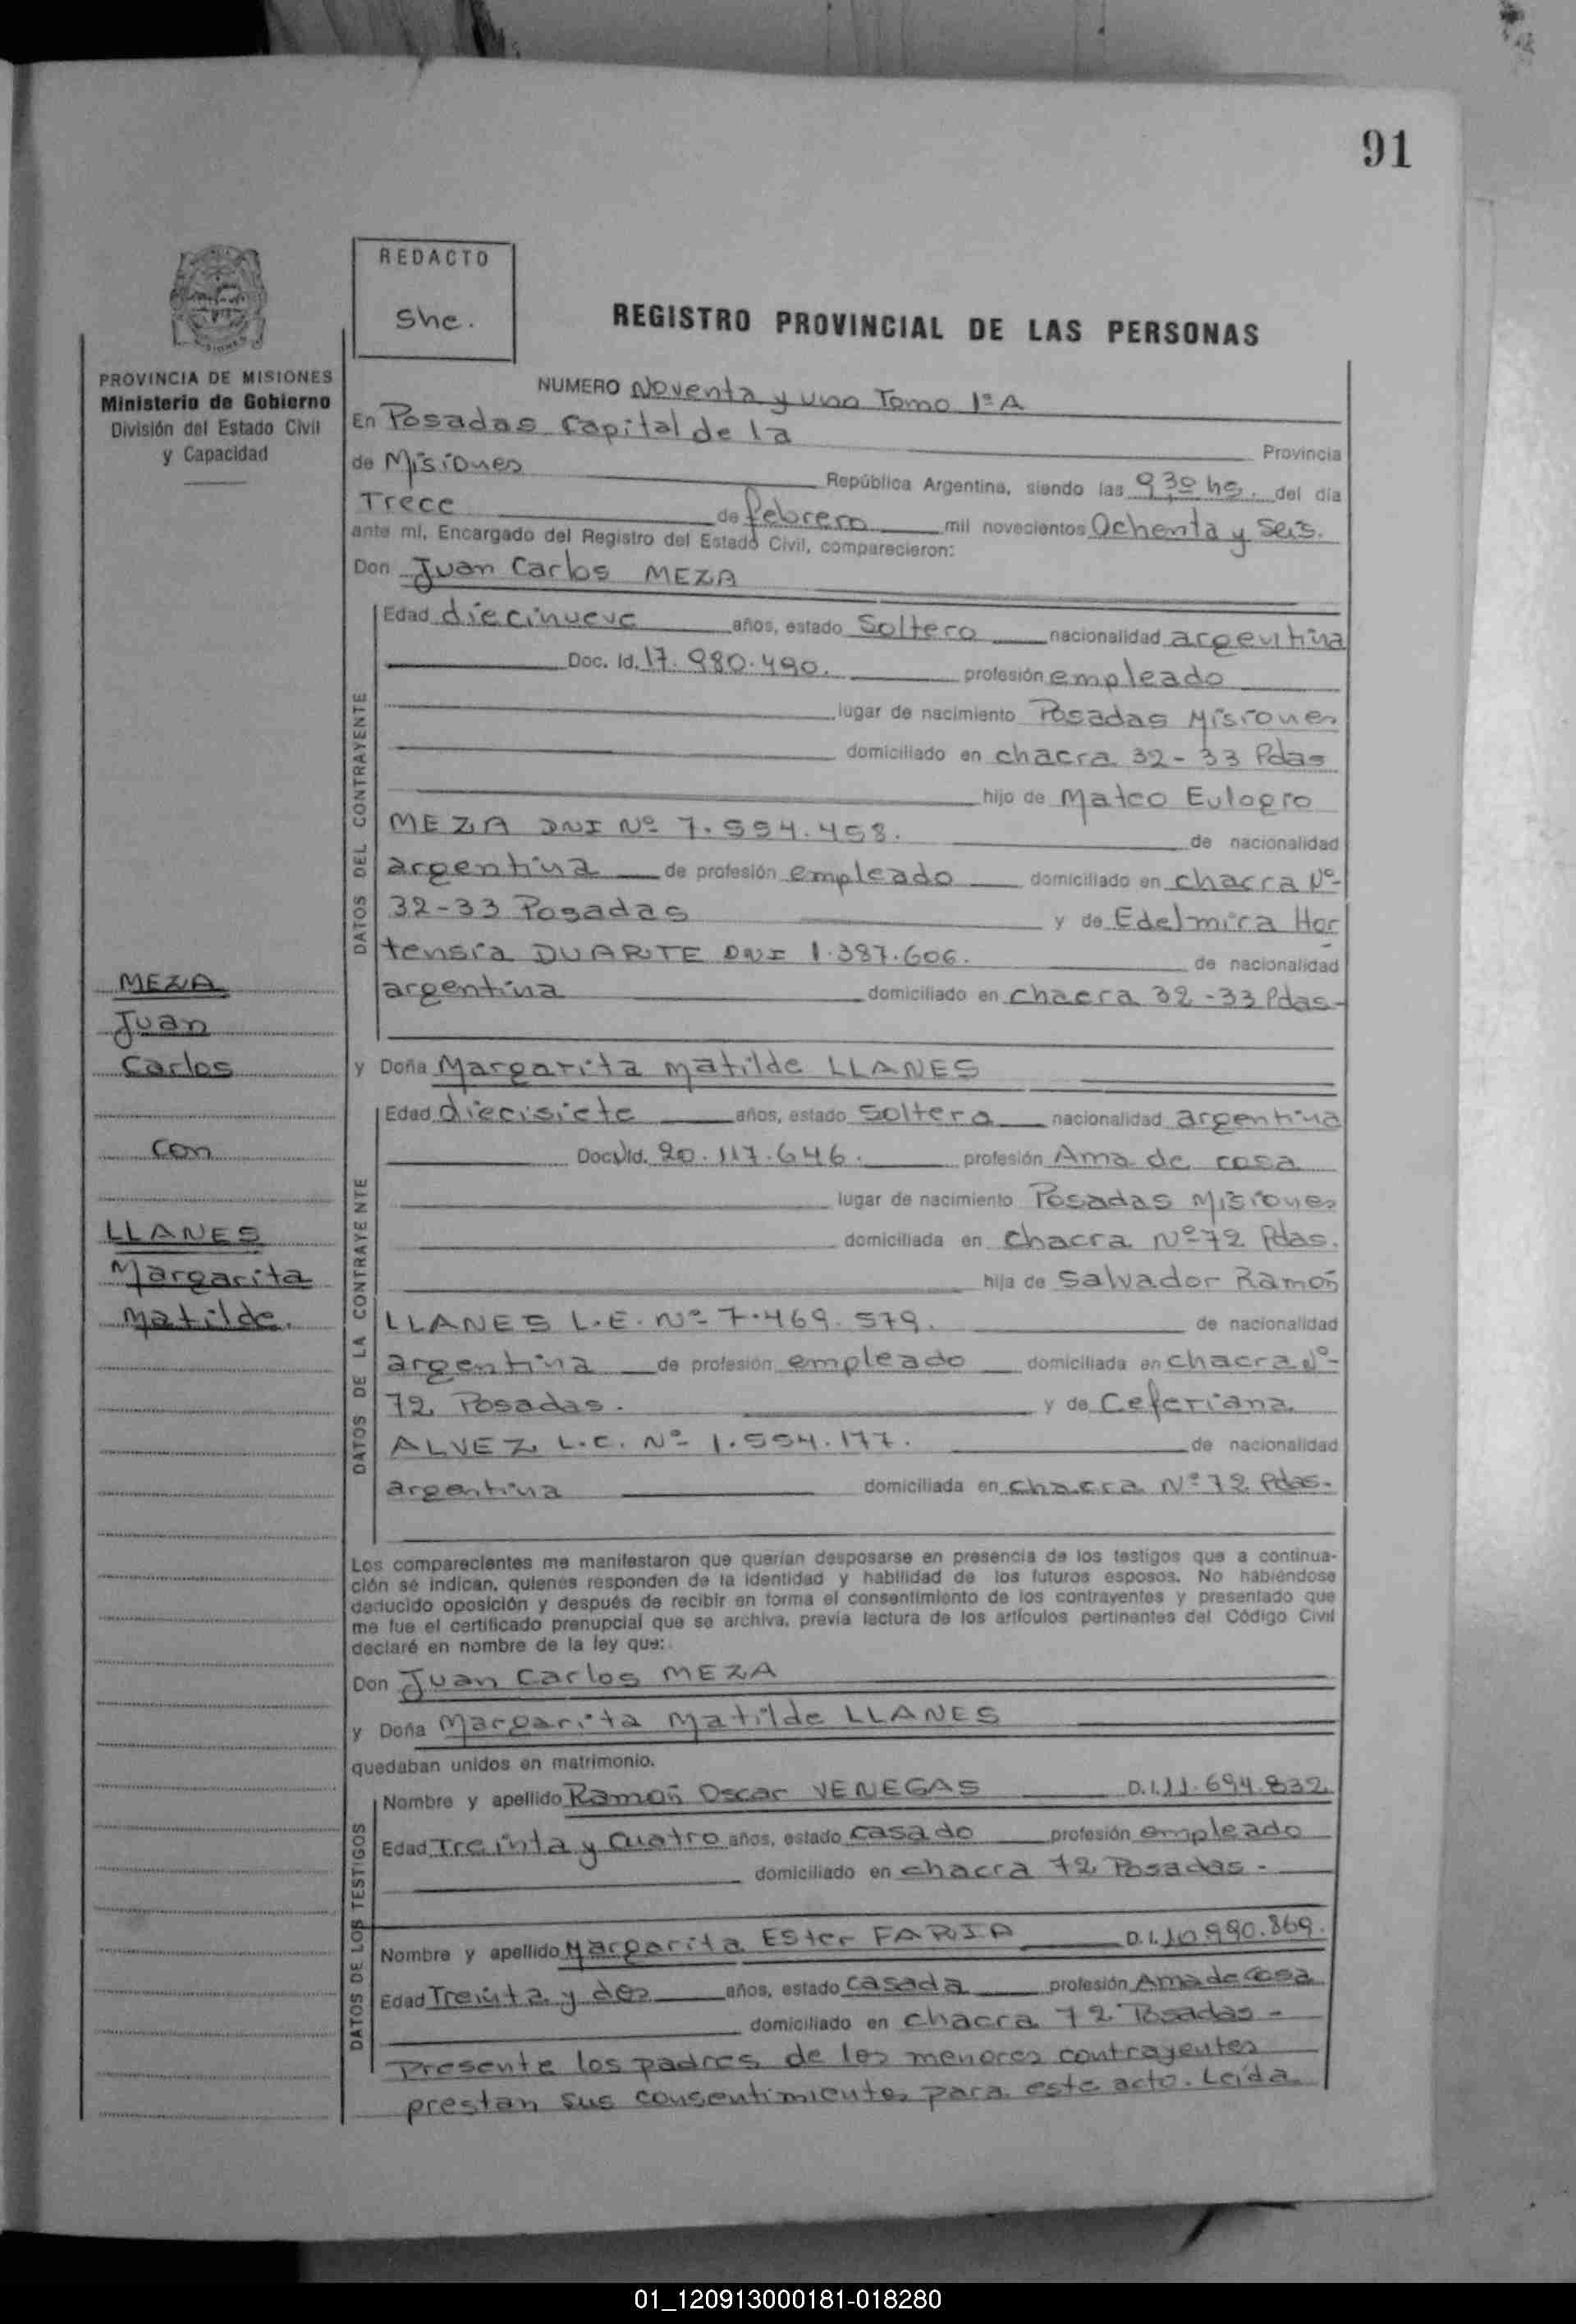 91
REDACTO
She.
REGISTRO PROVINCIAL DE LAS PERSONAS
PROVINCIA DE MISIONES
Ministerio de Gobierno
División del Estado Civil
y Capacidad
NUMERO Noventa y uno Tomo 1º A
En Posadas Capital de la Provincia
de Misiones República Argentina, siendo las 9,30 hs. del día
Trece de febrero mil novecientos Ochenta y Seis.
ante mí, Encargado del Registro del Estado Civil, comparecieron:
Don Juan Carlos MEZA
DATOS DEL CONTRAYENTE
Edad diecinueve años, estado Soltero nacionalidad argentina
Doc. Id. 17.980.490. profesión empleado
lugar de nacimiento Posadas Misiones
domiciliado en chacra 32-33 Pdas
hijo de Mateo Eulogio
MEZA DNI Nº 7.554.458. de nacionalidad
argentina de profesión empleado domiciliado en chacra Nº
32-33 Posadas y de Edelmira Hor
tensia DUARTE DNI 1.387.606. de nacionalidad
argentina domiciliado en chacra 32-33 Pdas-
y Doña Margarita Matilde LLANES
DATOS DE LA CONTRAYENTE
Edad diecisiete años, estado Soltera nacionalidad argentina
Doc. Id. 20.117.646. profesión Ama de casa
lugar de nacimiento Posadas Misiones
domiciliada en chacra Nº 72 Pdas.
hija de Salvador Ramón
LLANES L.E. Nº 7.469.579. de nacionalidad
argentina de profesión empleado domiciliada en chacra Nº
72 Posadas. y de Ceferiana
ALVEZ L.C. Nº 1.554.177. de nacionalidad
argentina domiciliada en chacra Nº 72 Pdas-
MEZA
Juan
Carlos
con
LLANES
Margarita
Matilde.
Los comparecientes me manifestaron que querían desposarse en presencia de los testigos que a continua-
ción se indican, quienes responden de la identidad y habilidad de los futuros esposos. No habiéndose
deducido oposición y después de recibir en forma el consentimiento de los contrayentes y presentado que
me fue el certificado prenupcial que se archiva, previa lectura de los artículos pertinentes del Código Civil
declaré en nombre de la ley que:
Don Juan Carlos MEZA
y Doña Margarita Matilde LLANES
quedaban unidos en matrimonio.
DATOS DE LOS TESTIGOS
Nombre y apellido Ramón Oscar VENEGAS D.I. 11.694.832
Edad Treinta y Cuatro años, estado casado profesión empleado
domiciliado en chacra 72 Posadas-
Nombre y apellido Margarita Ester FARIA D.I. 10.990.869.
Edad Treinta y dos años, estado casada profesión Ama de casa
domiciliado en chacra 72 Posadas-
Presente los padres de los menores contrayentes
prestan sus consentimientos para este acto. Leída
01_120913000181-018280